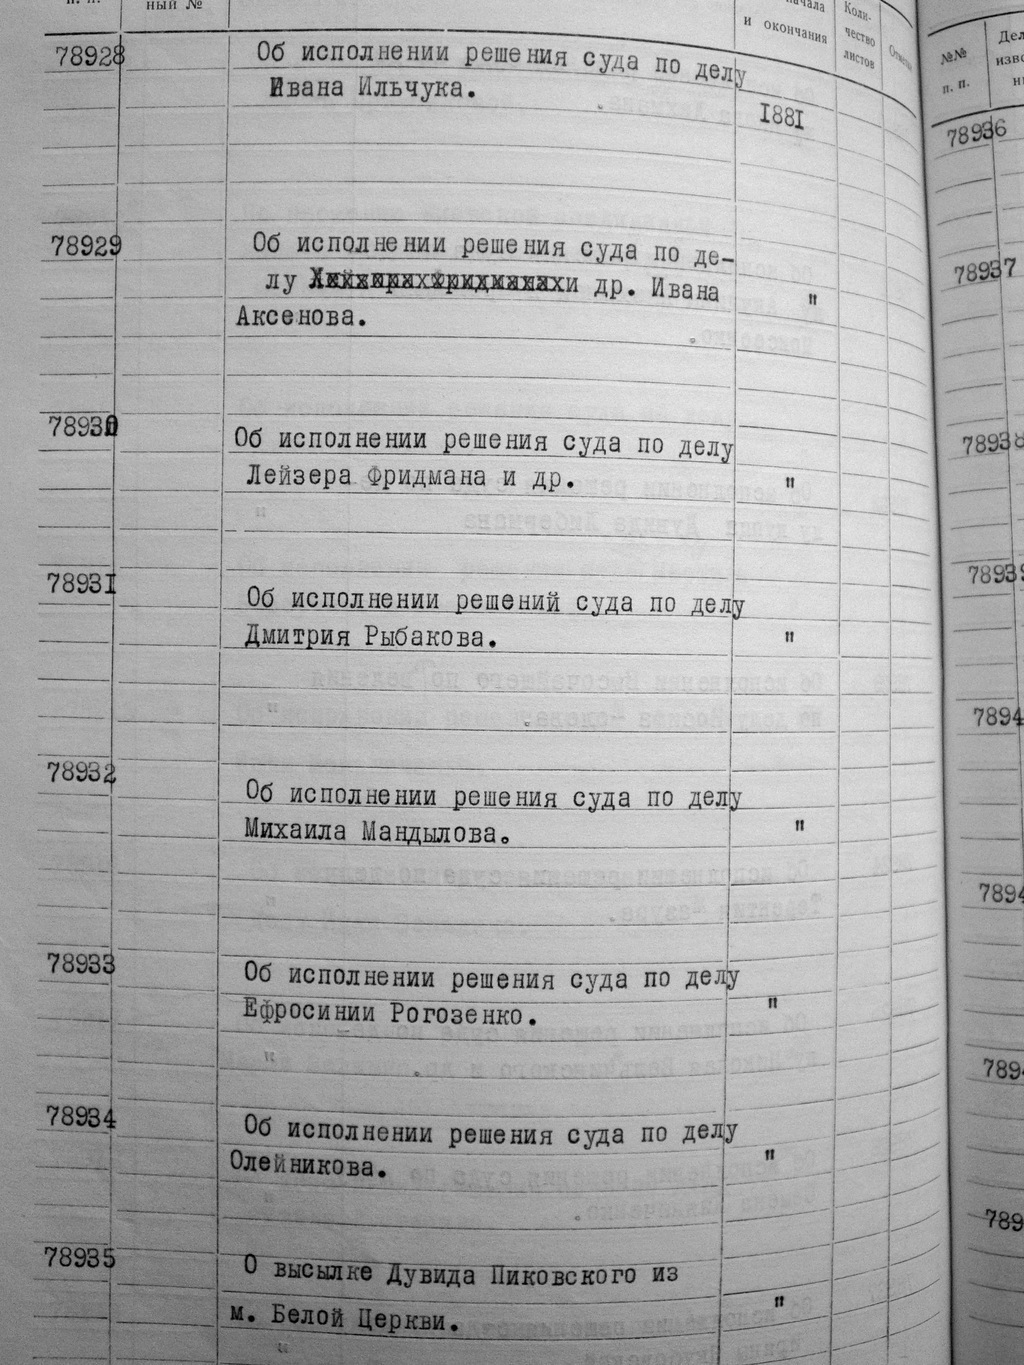 п. п.
ный №
начала
и окончания
Коли-
чество
листов
78928
Об исполнении решения суда по делу
Ивана Ильчука.
1881
78929
Об исполнении решения суда по де-
лу и др. Ивана "
Аксенова.
78930
Об исполнении решения суда по делу
Лейзера Фридмана и др. "
78931
Об исполнении решений суда по делу
Дмитрия Рыбакова. "
78932
Об исполнении решения суда по делу
Михаила Мандылова. "
78933
Об исполнении решения суда по делу
Ефросинии Рогозенко. "
78934
Об исполнении решения суда по делу
Олейникова. "
78935
О высылке Дувида Пиковского из
м. Белой Церкви. "
№№
п. п.
78936
78937
78938